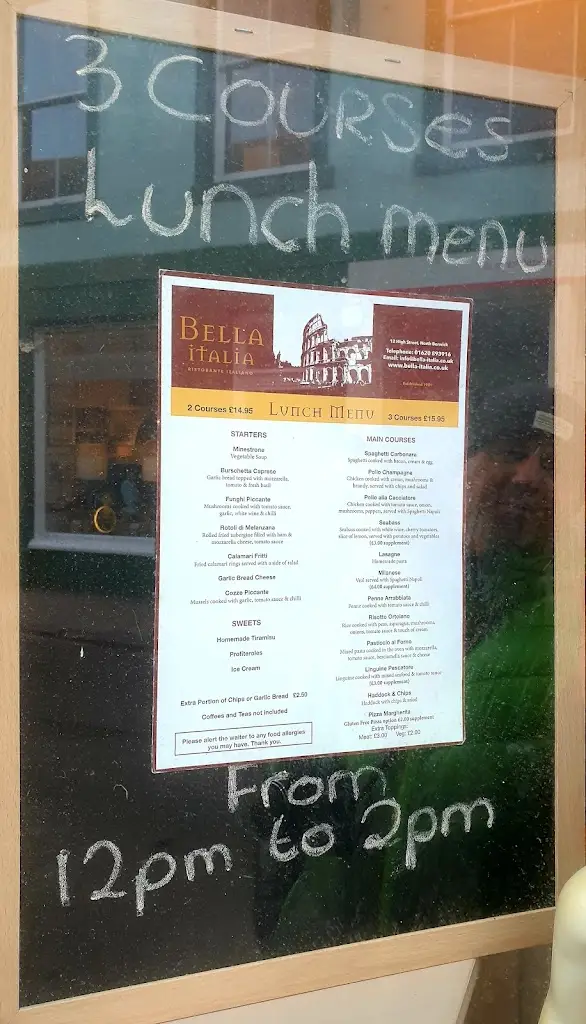 3 Courses
Lunch menu
BELLA
iTALIA
RISTORANTE ITALIANO
13 High Street, North Berwick
Telephone: 01620 893916
Email: info@bella-italia.co.uk
www.bella-italia.co.uk
2 Courses £14.95
LUNCH MENU
3 Courses £15.95
STARTERS
Minestrone
Vegetable Soup
Burschetta Caprese
Garlic bread topped with mozzarella,
tomato & fresh basil
Funghi Piccante
Mushrooms cooked with tomato sauce,
garlic, white wine & chilli
Rotoli di Melanzana
Rolled fried aubergine filled with ham &
mozzarella cheese, tomato sauce
Calamari Fritti
Fried calamari rings served with a side of salad
Garlic Bread Cheese
Cozze Piccante
Mussels cooked with garlic, tomato sauce & chilli
SWEETS
Homemade Tiramisu
Profiteroles
Ice Cream
Extra Portion of Chips or Garlic Bread £2.50
Coffees and Teas not included
Please alert the waiter to any food allergies
you may have. Thank you.
MAIN COURSES
Spaghetti Carbonara
Spaghetti cooked with bacon, cream & egg
Pollo Champagne
Chicken cooked with cream, mushrooms &
brandy, served with chips and salad
Pollo alla Cacciatore
Chicken cooked with tomato sauce, onion,
mushrooms, peppers, served with Spaghetti Napoli
Seabass
Seabass cooked with white wine, cherry tomatoes,
slice of lemon, served with potatoes and vegetables
(£3.00 supplement)
Lasagne
Homemade pasta
Milanese
Veal served with Spaghetti Napoli
(£4.00 supplement)
Penne Arrabbiata
Penne cooked with tomato sauce & chilli
Risotto Ortolano
Rice cooked with peas, asparagus, mushrooms,
onions, tomato sauce & touch of cream
Pasticcio al Forno
Mixed pasta cooked in the oven with mozzarella,
tomato sauce, besciamella sauce & cheese
Linguine Pescatore
Linguine cooked with mixed seafood & tomato sauce
(£3.00 supplement)
Haddock & Chips
Haddock with chips & salad
Pizza Margherita
Gluten Free Pizza option £2.00 supplement
Extra Toppings:
Meat: £3.00 Veg: £2.00
From
12pm to 2pm